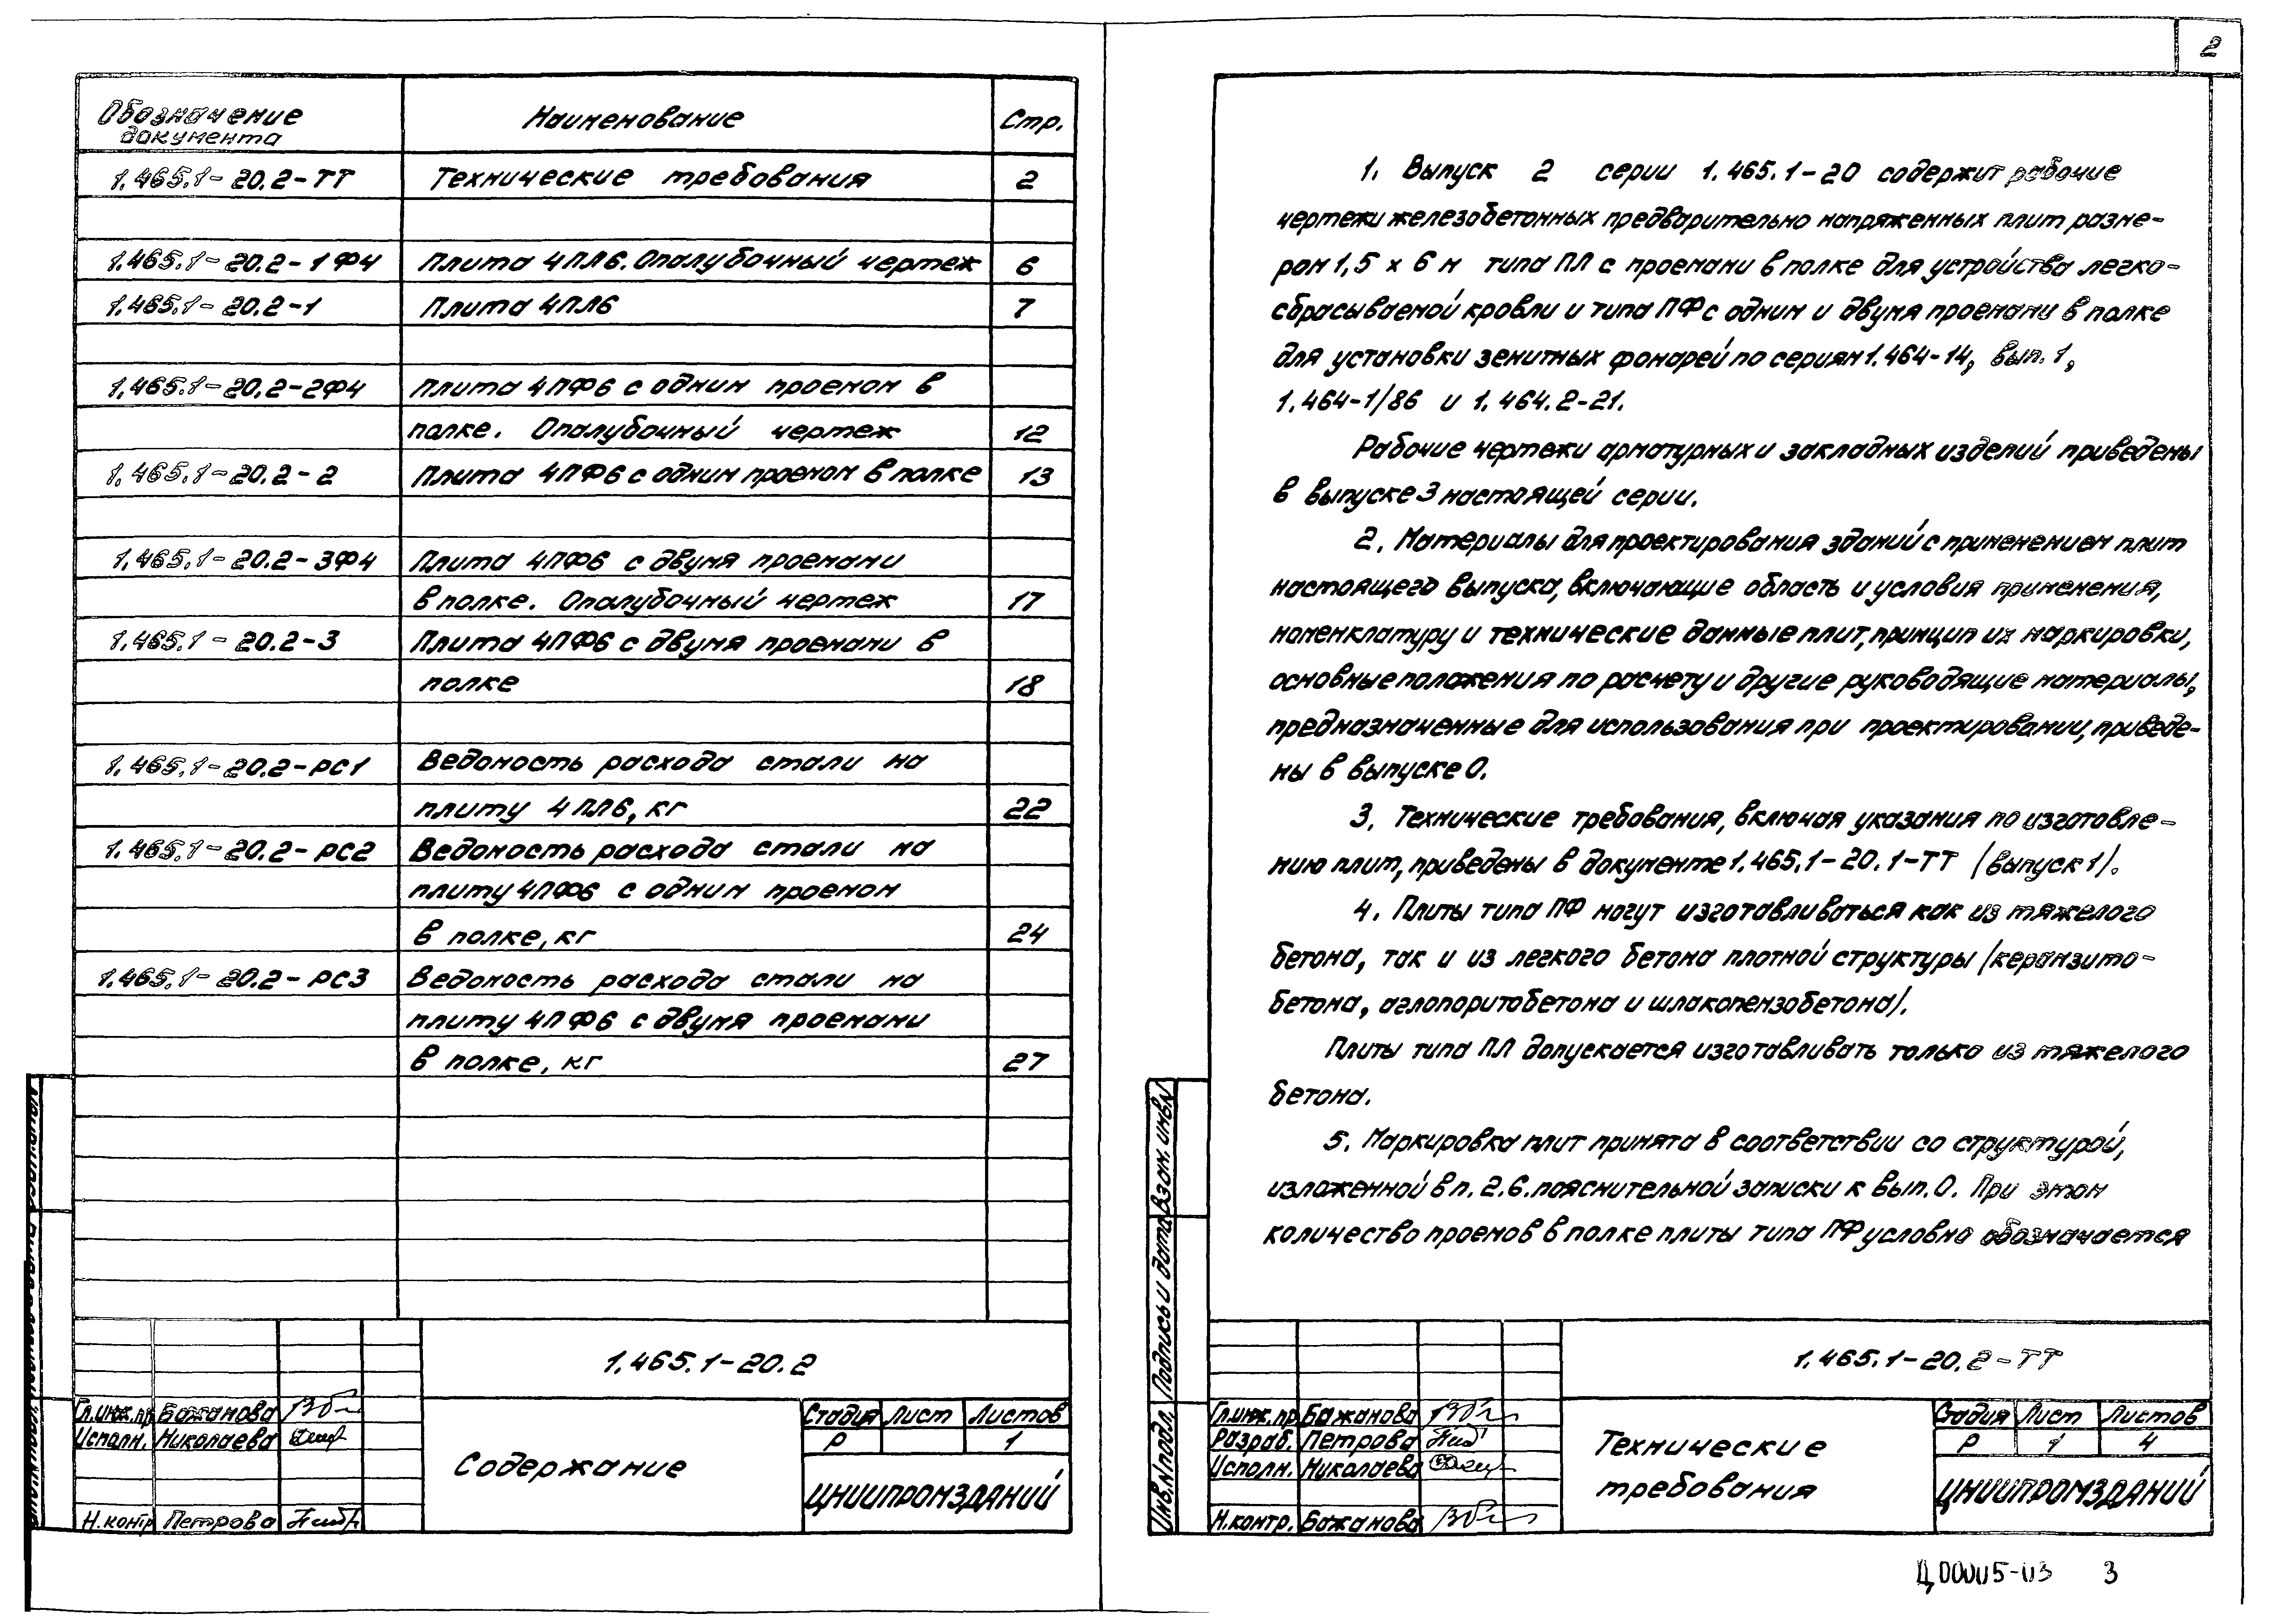 Обозначение документа Наименование Стр.
1.465.1-20.2-ТТ Технические требования 2
1.465.1-20.2-1Ф4 Плита 4ПЛ6. Опалубочный чертеж 6
1.465.1-20.2-1 Плита 4ПЛ6 7
1.465.1-20.2-2Ф4 Плита 4ПФ6 с одним проемом в
полке. Опалубочный чертеж 12
1.465.1-20.2-2 Плита 4ПФ6 с одним проемом в полке 13
1.465.1-20.2-3Ф4 Плита 4ПФ6 с двумя проемами
в полке. Опалубочный чертеж 17
1.465.1-20.2-3 Плита 4ПФ6 с двумя проемами в
полке 18
1.465.1-20.2-РС1 Ведомость расхода стали на
плиту 4ПЛ6, кг 22
1.465.1-20.2-РС2 Ведомость расхода стали на
плиту 4ПФ6 с одним проемом
в полке, кг 24
1.465.1-20.2-РС3 Ведомость расхода стали на
плиту 4ПФ6 с двумя проемами
в полке, кг 27
1.465.1-20.2
Гл.инж.пр Бажанова
Исполн. Николаева
Н.контр Петрова
Содержание
Стадия Лист Листов
Р 1
ЦНИИПРОМЗДАНИЙ
2
1. Выпуск 2 серии 1.465.1-20 содержит рабочие
чертежи железобетонных предварительно напряженных плит разме-
ром 1,5 х 6 м типа ПЛ с проемами в полке для устройства легко-
сбрасываемой кровли и типа ПФ с одним и двумя проемами в полке
для установки зенитных фонарей по сериям 1.464-14, вып. 1,
1.464-1/86 и 1.464.2-21.
Рабочие чертежи арматурных и закладных изделий приведены
в выпуске 3 настоящей серии.
2. Материалы для проектирования зданий с применением плит
настоящего выпуска, включающие область и условия применения,
номенклатуру и технические данные плит, принцип их маркировки,
основные положения по расчету и другие руководящие материалы,
предназначенные для использования при проектировании, приведе-
ны в выпуске 0.
3. Технические требования, включая указания по изготовле-
нию плит, приведены в документе 1.465.1-20.1-ТТ (выпуск 1).
4. Плиты типа ПФ могут изготавливаться как из тяжелого
бетона, так и из легкого бетона плотной структуры (керамзито-
бетона, аглопоритобетона и шлакопемзобетона).
Плиты типа ПЛ допускается изготавливать только из тяжелого
бетона.
5. Маркировка плит принята в соответствии со структурой,
изложенной в п. 2.6. пояснительной записки к вып. 0. При этом
количество проемов в полке плиты типа ПФ условно обозначается
Инв.N подл. Подпись и дата Взам. инв.N
1.465.1-20.2-ТТ
Гл.инж.пр Бажанова
Разраб. Петрова
Исполн. Николаева
Н.контр. Бажанова
Технические
требования
Стадия Лист Листов
Р 1 4
ЦНИИПРОМЗДАНИЙ
Ц00005-03 3